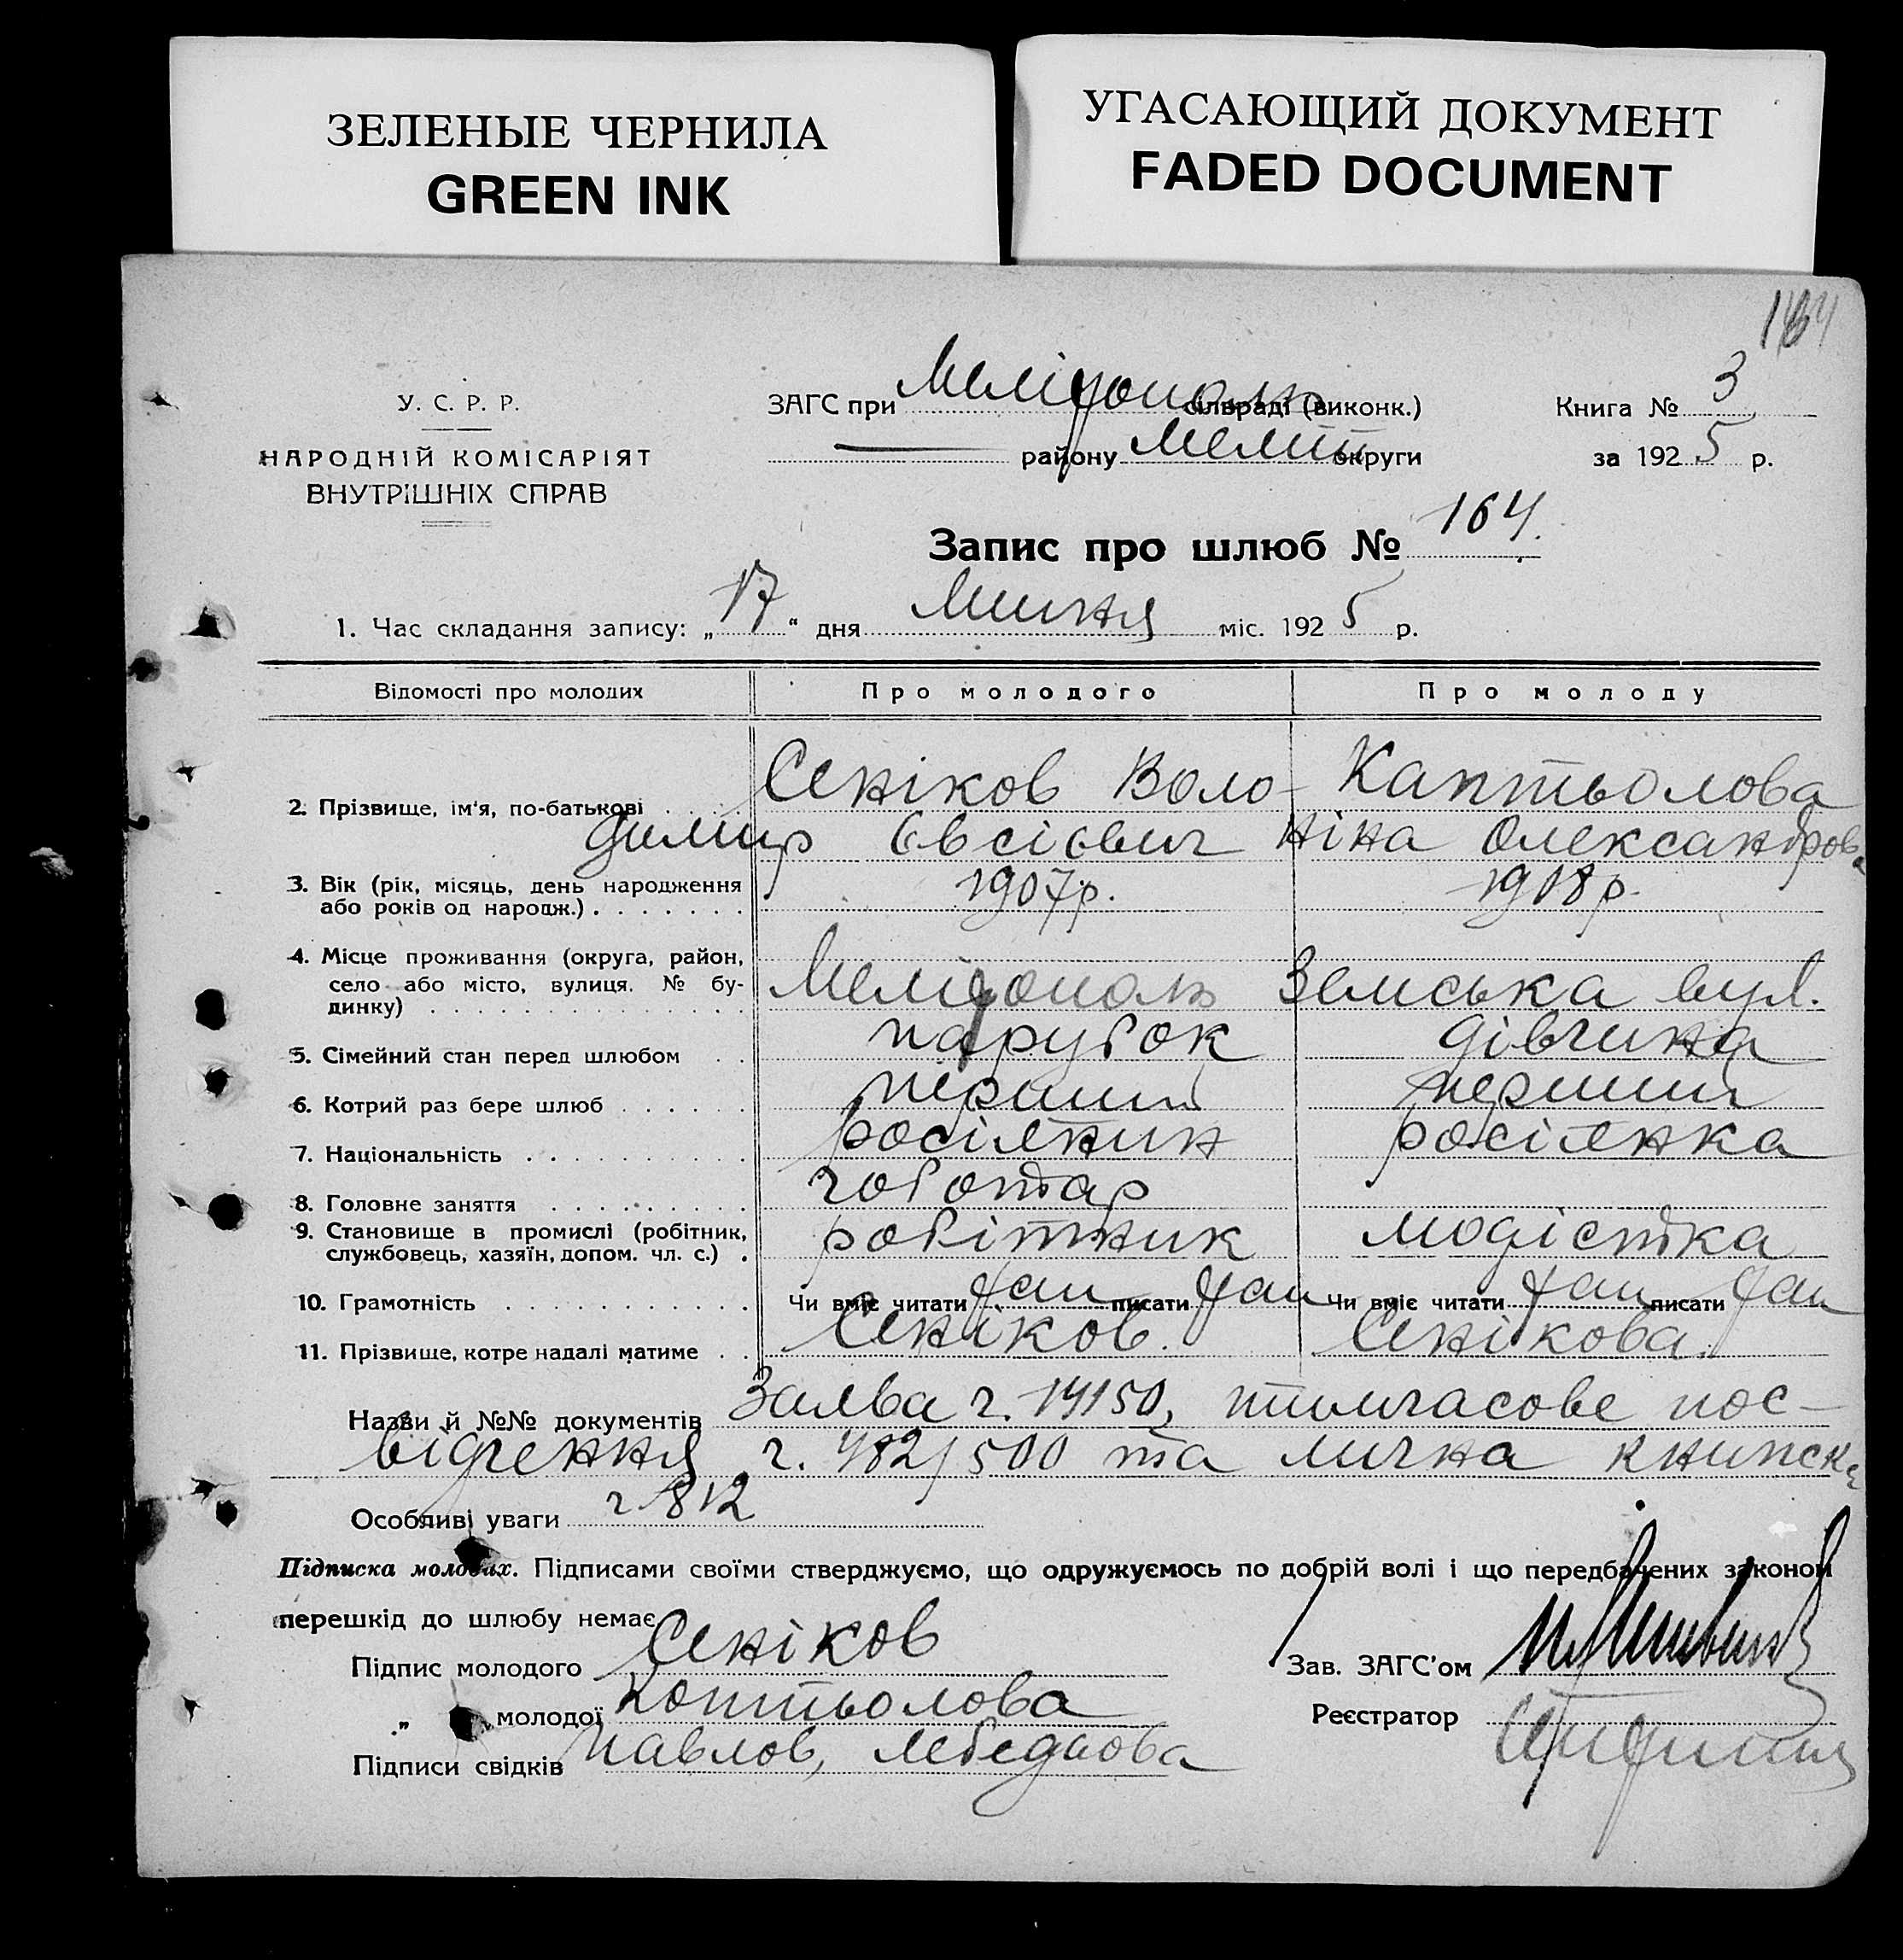 ЗЕЛЕНЫЕ ЧЕРНИЛА
GREEN INK
УГАСАЮЩИЙ ДОКУМЕНТ
FADED DOCUMENT
164
У. С. Р. Р.
НАРОДНІЙ КОМІСАРІЯТ
ВНУТРІШНІХ СПРАВ
ЗАГС при Мелітополь сільраді (виконк.)
району Меліт. округи
Книга № 3
за 1925 р.
Запис про шлюб № 164.
1. Час складання запису: „17“ дня Липня міс. 1925 р.
Відомості про молодих Про молодого Про молоду
2. Прізвище, ім'я, по-батькові Сеніков Воло- Каптьолова
димир Євсієвич Ніна Олександрова
3. Вік (рік, місяць, день народження
або років од народж.) 1907р. 1908р.
4. Місце проживання (округа, район,
село або місто, вулиця. № бу-
динку) Мелітополь Земська вул.
5. Сімейний стан перед шлюбом парубок дівчина
6. Котрий раз бере шлюб перший перший
7. Національність росіянин росіянка
8. Головне заняття чоботар
9. Становище в промислі (робітник,
службовець, хазяїн, допом. чл. с.) робітник модістка
10. Грамотність Чи вміє читати так писати так Чи вміє читати так писати так
11. Прізвище, котре надалі матиме Сеніков. Сенікова.
Назви й №№ документів Заява ч. 14150, тимчасове пос-
відчення ч. 482/500 та лична книжка
Особливі уваги ч 812
Підписка молодих. Підписами своїми стверджуємо, що одружуємось по добрій волі і що передбачених законом
перешкід до шлюбу немає
Підпис молодого Сеніков
„ молодої Коптьолова
Підписи свідків Павлов, Лебедкова
Зав. ЗАГС'ом
Реєстратор